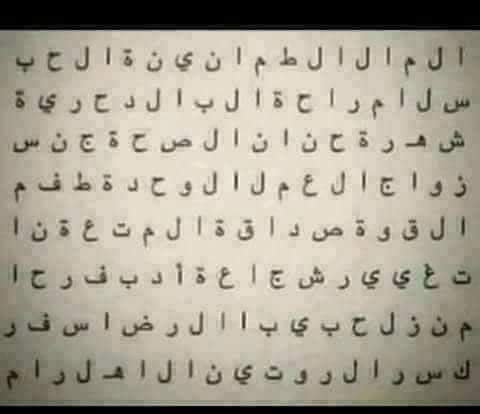 ا ل م ا ل ا ل ط م ا ن ي ن ة ا ل ح ب
س ل ا م ر ا ح ة ا ل ب ا ل د ح ر ي ة
ش هـ ر ة ح ن ا ن ا ل ص ح ة ج ن س
ز و ا ج ا ل ع م ل ا ل و ح د ة ط ف م
ا ل ق و ة ص د ا ق ة ا ل م ت ع ة ن ا
ت غ ي ي ر ش ج ا ع ة أ د ب ف ر ح ا
م ن ز ل ح ب ي ب ا ا ل ر ض ا س ف ر
ك س ر ا ل ر و ت ي ن ا ل ا هـ ل ر ا م